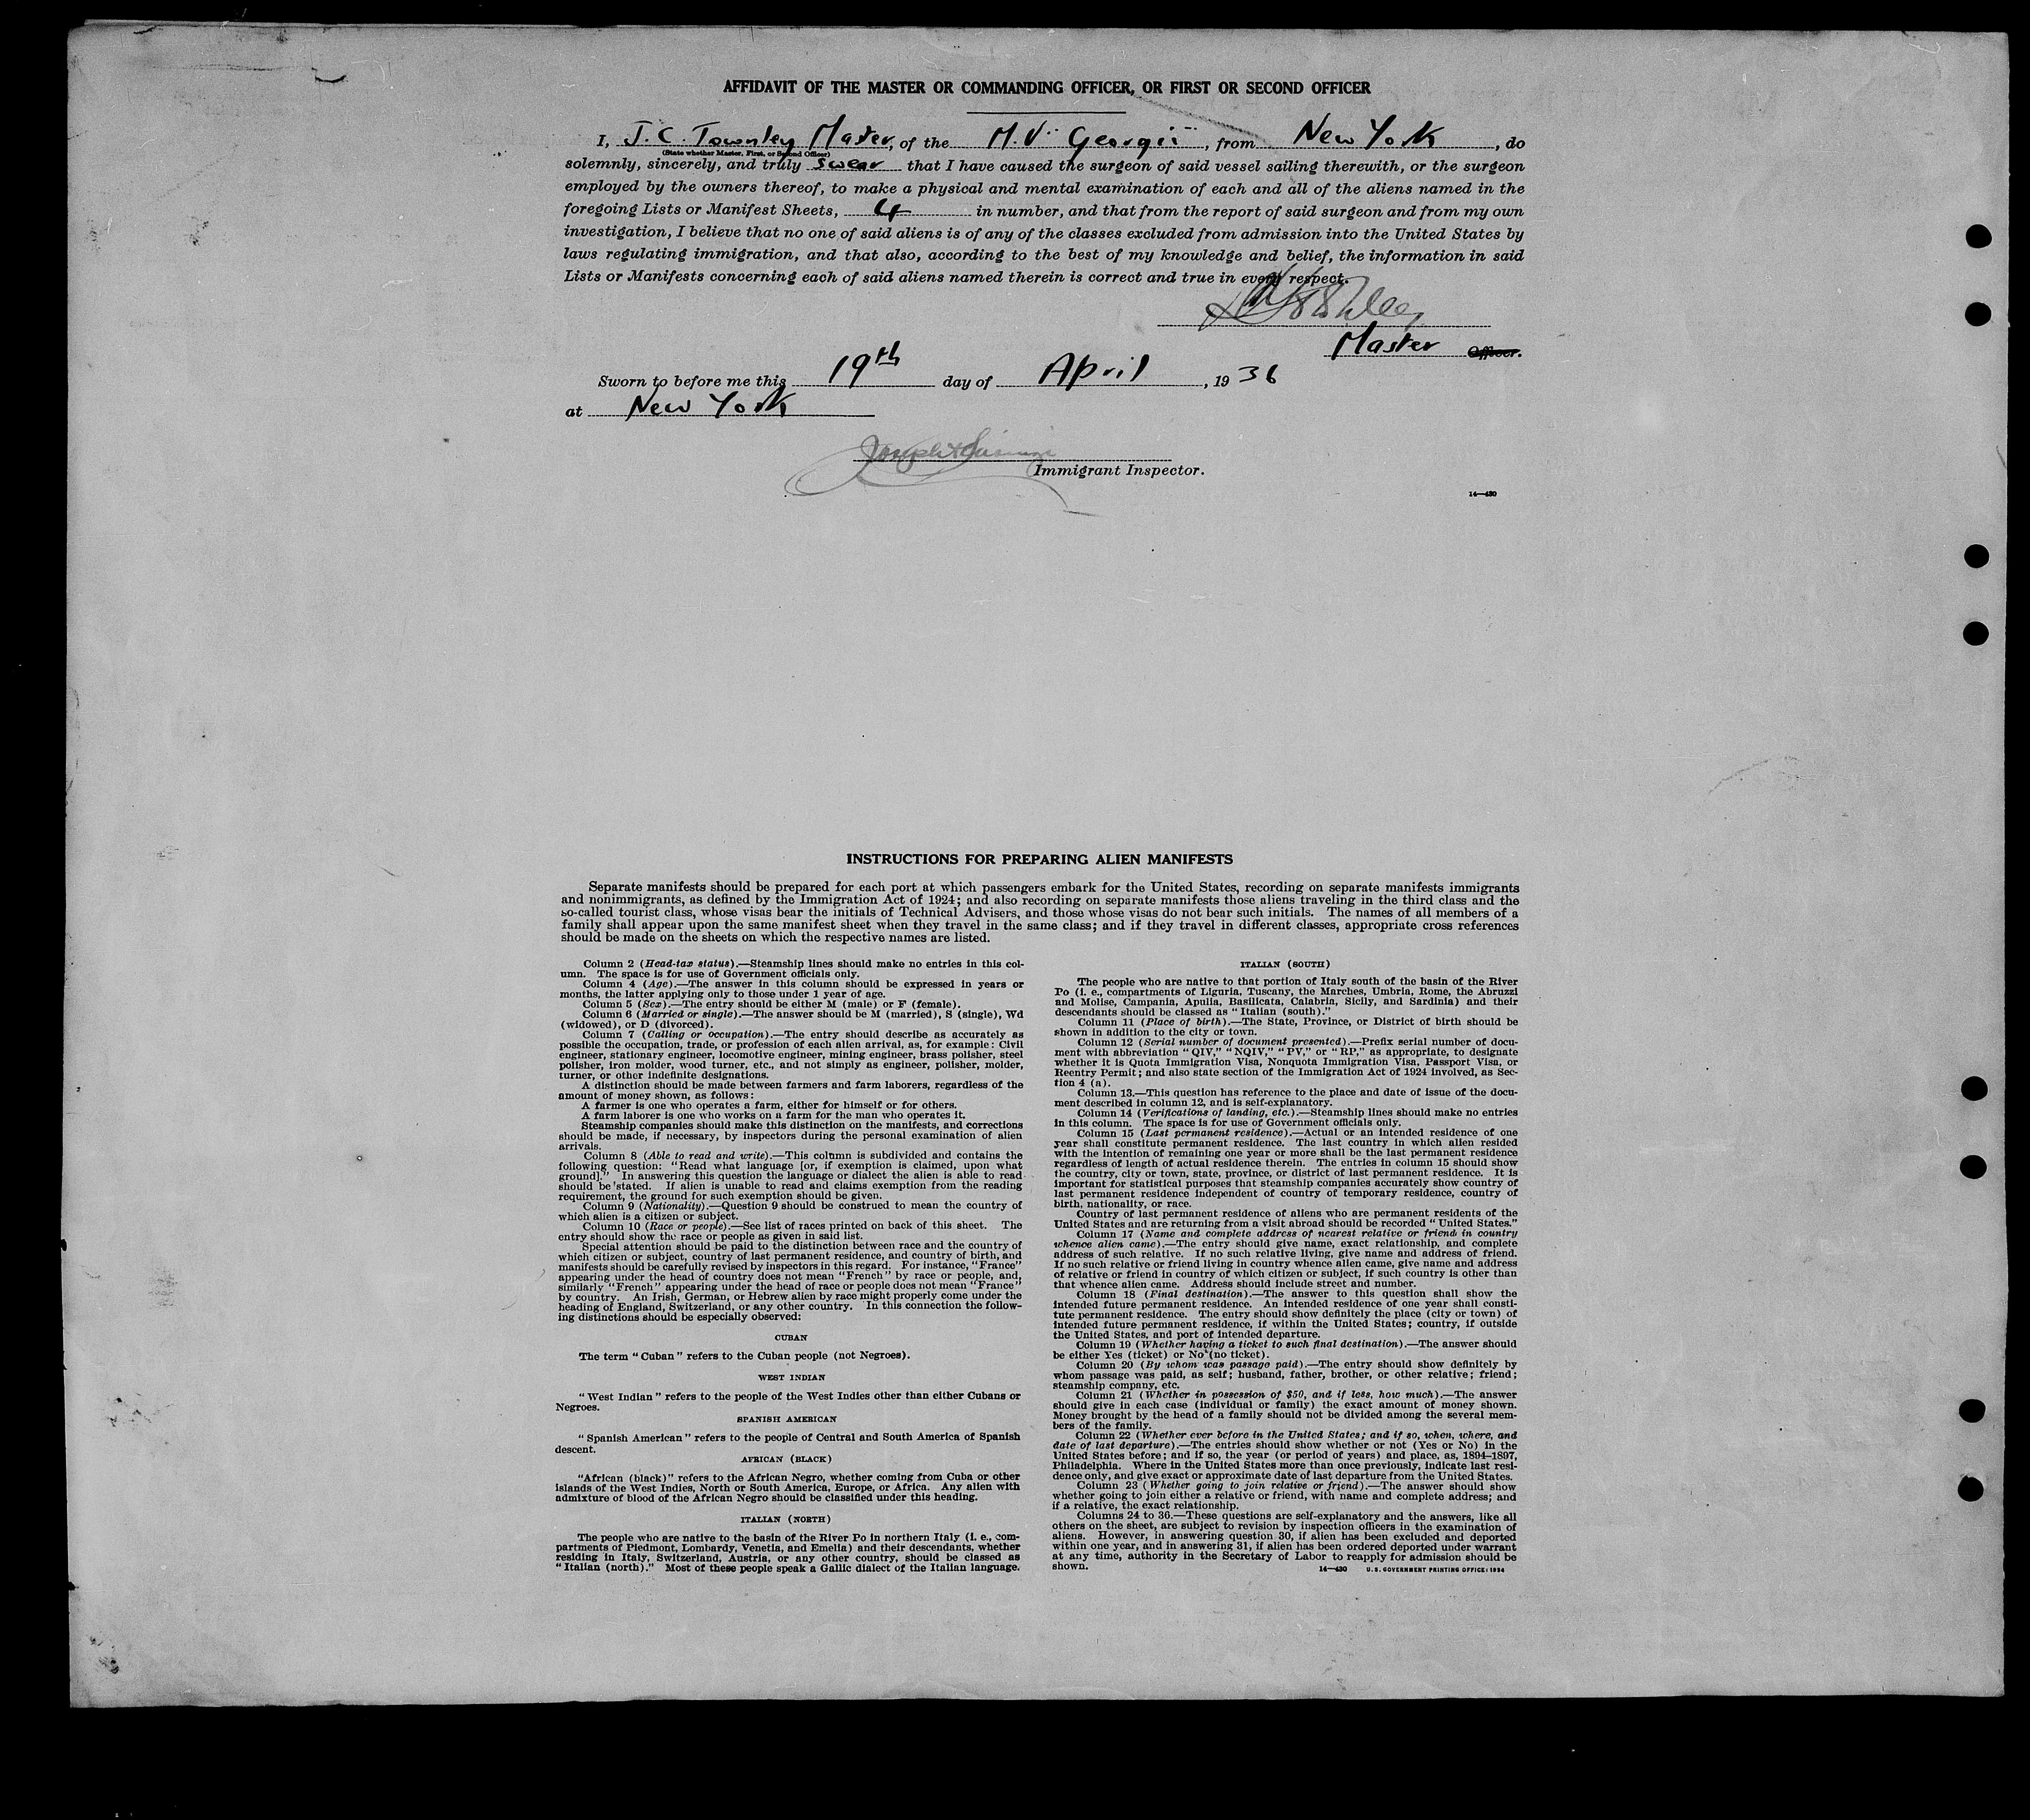 AFFIDAVIT OF THE MASTER OR COMMANDING OFFICER, OR FIRST OR SECOND OFFICER
I, J. C. Townley Master, of the M.V. Georgic, from New York, do
(State whether Master, First, or Second Officer)
solemnly, sincerely, and truly swear that I have caused the surgeon of said vessel sailing therewith, or the surgeon
employed by the owners thereof, to make a physical and mental examination of each and all of the aliens named in the
foregoing Lists or Manifest Sheets, 4 in number, and that from the report of said surgeon and from my own
investigation, I believe that no one of said aliens is of any of the classes excluded from admission into the United States by
laws regulating immigration, and that also, according to the best of my knowledge and belief, the information in said
Lists or Manifests concerning each of said aliens named therein is correct and true in every respect.
Master Officer.
Sworn to before me this 19th day of April, 1936
at New York
Joseph
Immigrant Inspector.
14—430
INSTRUCTIONS FOR PREPARING ALIEN MANIFESTS
Separate manifests should be prepared for each port at which passengers embark for the United States, recording on separate manifests immigrants
and nonimmigrants, as defined by the Immigration Act of 1924; and also recording on separate manifests those aliens traveling in the third class and the
so-called tourist class, whose visas bear the initials of Technical Advisers, and those whose visas do not bear such initials. The names of all members of a
family shall appear upon the same manifest sheet when they travel in the same class; and if they travel in different classes, appropriate cross references
should be made on the sheets on which the respective names are listed.
Column 2 (Head-tax status).—Steamship lines should make no entries in this col-
umn. The space is for use of Government officials only.
Column 4 (Age).—The answer in this column should be expressed in years or
months, the latter applying only to those under 1 year of age.
Column 5 (Sex).—The entry should be either M (male) or F (female).
Column 6 (Married or single).—The answer should be M (married), S (single), Wd
(widowed), or D (divorced).
Column 7 (Calling or occupation).—The entry should describe as accurately as
possible the occupation, trade, or profession of each alien arrival, as, for example: Civil
engineer, stationary engineer, locomotive engineer, mining engineer, brass polisher, steel
polisher, iron molder, wood turner, etc., and not simply as engineer, polisher, molder,
turner, or other indefinite designations.
A distinction should be made between farmers and farm laborers, regardless of the
amount of money shown, as follows:
A farmer is one who operates a farm, either for himself or for others.
A farm laborer is one who works on a farm for the man who operates it.
Steamship companies should make this distinction on the manifests, and corrections
should be made, if necessary, by inspectors during the personal examination of alien
arrivals.
Column 8 (Able to read and write).—This column is subdivided and contains the
following question: "Read what language [or, if exemption is claimed, upon what
ground]." In answering this question the language or dialect the alien is able to read
should be stated. If alien is unable to read and claims exemption from the reading
requirement, the ground for such exemption should be given.
Column 9 (Nationality).—Question 9 should be construed to mean the country of
which alien is a citizen or subject.
Column 10 (Race or people).—See list of races printed on back of this sheet. The
entry should show the race or people as given in said list.
Special attention should be paid to the distinction between race and the country of
which citizen or subject, country of last permanent residence, and country of birth, and
manifests should be carefully revised by inspectors in this regard. For instance, "France"
appearing under the head of country does not mean "French" by race or people, and,
similarly "French" appearing under the head of race or people does not mean "France"
by country. An Irish, German, or Hebrew alien by race might properly come under the
heading of England, Switzerland, or any other country. In this connection the follow-
ing distinctions should be especially observed:
CUBAN
The term "Cuban" refers to the Cuban people (not Negroes).
WEST INDIAN
"West Indian" refers to the people of the West Indies other than either Cubans or
Negroes.
SPANISH AMERICAN
"Spanish American" refers to the people of Central and South America of Spanish
descent.
AFRICAN (BLACK)
"African (black)" refers to the African Negro, whether coming from Cuba or other
islands of the West Indies, North or South America, Europe, or Africa. Any alien with
admixture of blood of the African Negro should be classified under this heading.
ITALIAN (NORTH)
The people who are native to the basin of the River Po in northern Italy (i. e., com-
partments of Piedmont, Lombardy, Venetia, and Emelia) and their descendants, whether
residing in Italy, Switzerland, Austria, or any other country, should be classed as
"Italian (north)." Most of these people speak a Gallic dialect of the Italian language.
ITALIAN (SOUTH)
The people who are native to that portion of Italy south of the basin of the River
Po (i. e., compartments of Liguria, Tuscany, the Marches, Umbria, Rome, the Abruzzi
and Molise, Campania, Apulia, Basilicata, Calabria, Sicily, and Sardinia) and their
descendants should be classed as "Italian (south)."
Column 11 (Place of birth).—The State, Province, or District of birth should be
shown in addition to the city or town.
Column 12 (Serial number of document presented).—Prefix serial number of docu-
ment with abbreviation "QIV," "NQIV," "PV," or "RP," as appropriate, to designate
whether it is Quota Immigration Visa, Nonquota Immigration Visa, Passport Visa, or
Reentry Permit; and also state section of the Immigration Act of 1924 involved, as Sec-
tion 4 (a).
Column 13.—This question has reference to the place and date of issue of the docu-
ment described in column 12, and is self-explanatory.
Column 14 (Verifications of landing, etc.).—Steamship lines should make no entries
in this column. The space is for use of Government officials only.
Column 15 (Last permanent residence).—Actual or an intended residence of one
year shall constitute permanent residence. The last country in which alien resided
with the intention of remaining one year or more shall be the last permanent residence
regardless of length of actual residence therein. The entries in column 15 should show
the country, city or town, state, province, or district of last permanent residence. It is
important for statistical purposes that steamship companies accurately show country of
last permanent residence independent of country of temporary residence, country of
birth, nationality, or race.
Country of last permanent residence of aliens who are permanent residents of the
United States and are returning from a visit abroad should be recorded "United States."
Column 17 (Name and complete address of nearest relative or friend in country
whence alien came).—The entry should give name, exact relationship, and complete
address of such relative. If no such relative living, give name and address of friend.
If no such relative or friend living in country whence alien came, give name and address
of relative or friend in country of which citizen or subject, if such country is other than
that whence alien came. Address should include street and number.
Column 18 (Final destination).—The answer to this question shall show the
intended future permanent residence. An intended residence of one year shall consti-
tute permanent residence. The entry should show definitely the place (city or town) of
intended future permanent residence, if within the United States; country, if outside
the United States, and port of intended departure.
Column 19 (Whether having a ticket to such final destination).—The answer should
be either Yes (ticket) or No (no ticket).
Column 20 (By whom was passage paid).—The entry should show definitely by
whom passage was paid, as self; husband, father, brother, or other relative; friend;
steamship company, etc.
Column 21 (Whether in possession of $50, and if less, how much).—The answer
should give in each case (individual or family) the exact amount of money shown.
Money brought by the head of a family should not be divided among the several mem-
bers of the family.
Column 22 (Whether ever before in the United States; and if so, when, where, and
date of last departure).—The entries should show whether or not (Yes or No) in the
United States before; and if so, the year (or period of years) and place, as, 1894–1897,
Philadelphia. Where in the United States more than once previously, indicate last resi-
dence only, and give exact or approximate date of last departure from the United States.
Column 23 (Whether going to join relative or friend).—The answer should show
whether going to join either a relative or friend, with name and complete address; and
if a relative, the exact relationship.
Columns 24 to 36.—These questions are self-explanatory and the answers, like all
others on the sheet, are subject to revision by inspection officers in the examination of
aliens. However, in answering question 30, if alien has been excluded and deported
within one year, and in answering 31, if alien has been ordered deported under warrant
at any time, authority in the Secretary of Labor to reapply for admission should be
shown.
14—430 U. S. GOVERNMENT PRINTING OFFICE: 1934